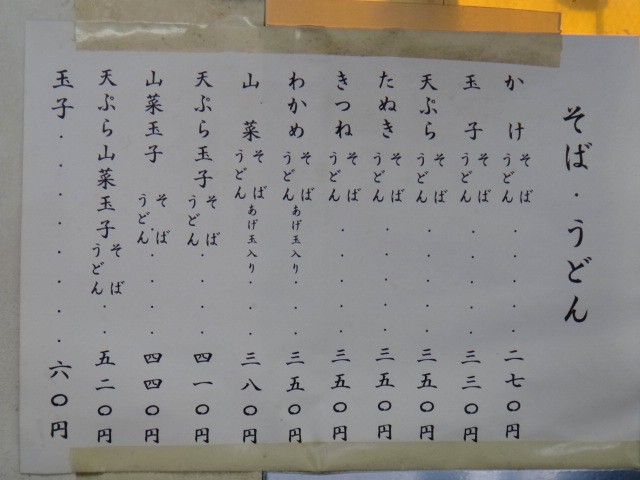 そば・うどん
かけ そば うどん ・・・・・ 二七〇円
玉子 そば うどん ・・・・・ 三三〇円
天ぷら そば うどん ・・・・・ 三五〇円
たぬき そば うどん ・・・・・ 三五〇円
きつね そば うどん ・・・・・ 三五〇円
わかめ そば うどん あげ玉入り ・・ 三五〇円
山菜 そば うどん あげ玉入り ・・ 三八〇円
天ぷら玉子 そば うどん ・・・・ 四一〇円
山菜玉子 そば うどん ・・・・ 四四〇円
天ぷら山菜玉子 そば うどん ・・ 五二〇円
玉子・・・・・・・・ 六〇円